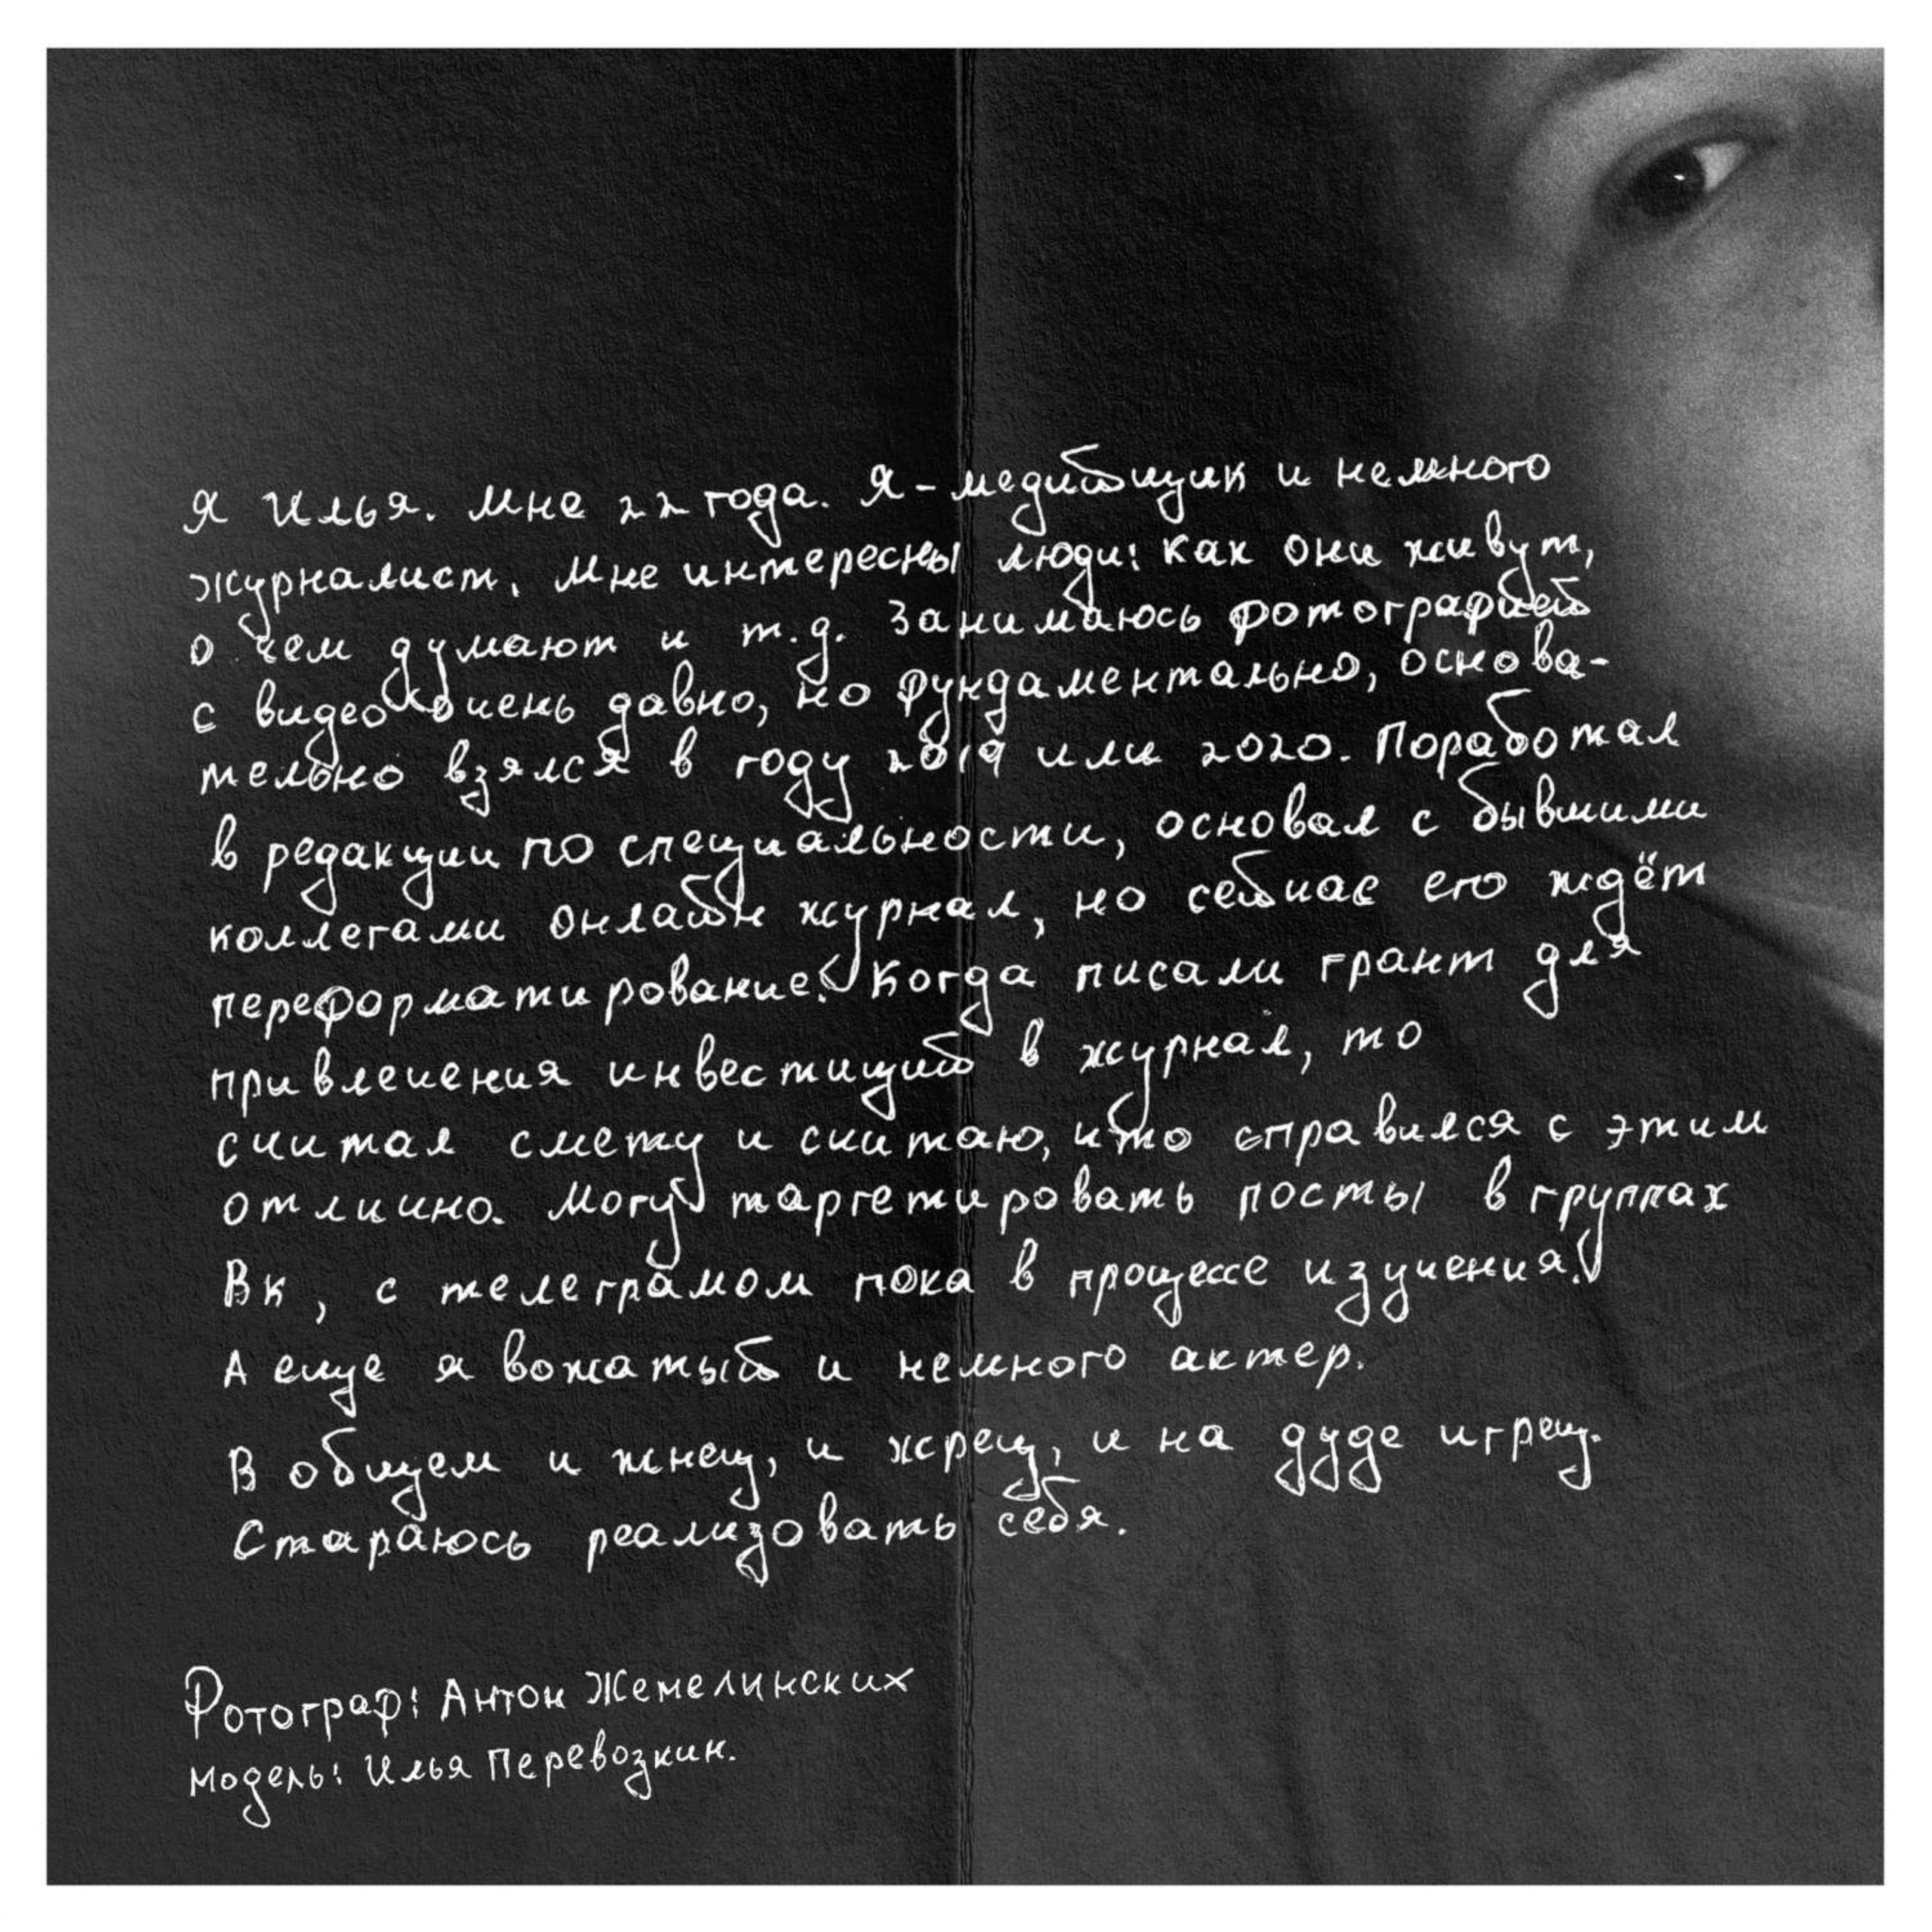 Я Илья. Мне 22 года. Я - медийщик и немного
журналист. Мне интересны люди: как они живут,
о чем думают и т.д. Занимаюсь фотографией
с видео очень давно, но фундаментально, основа-
тельно взялся в году 2019 или 2020. Поработал
в редакции по специальности, основал с бывшими
коллегами онлайн журнал, но сейчас его ждёт
переформатирование. Когда писали грант для
привлечения инвестиций в журнал, то
считал смету и считаю, что справился с этим
отлично. Могу таргетировать посты в группах
Вк, с телеграмом пока в процессе изучения.
А еще я вожатый и немного актер.
В общем и жнец, и жрец, и на дуде игрец.
Стараюсь реализовать себя.
Фотограф: Антон Жемелинских
Модель: Илья Перевозкин.